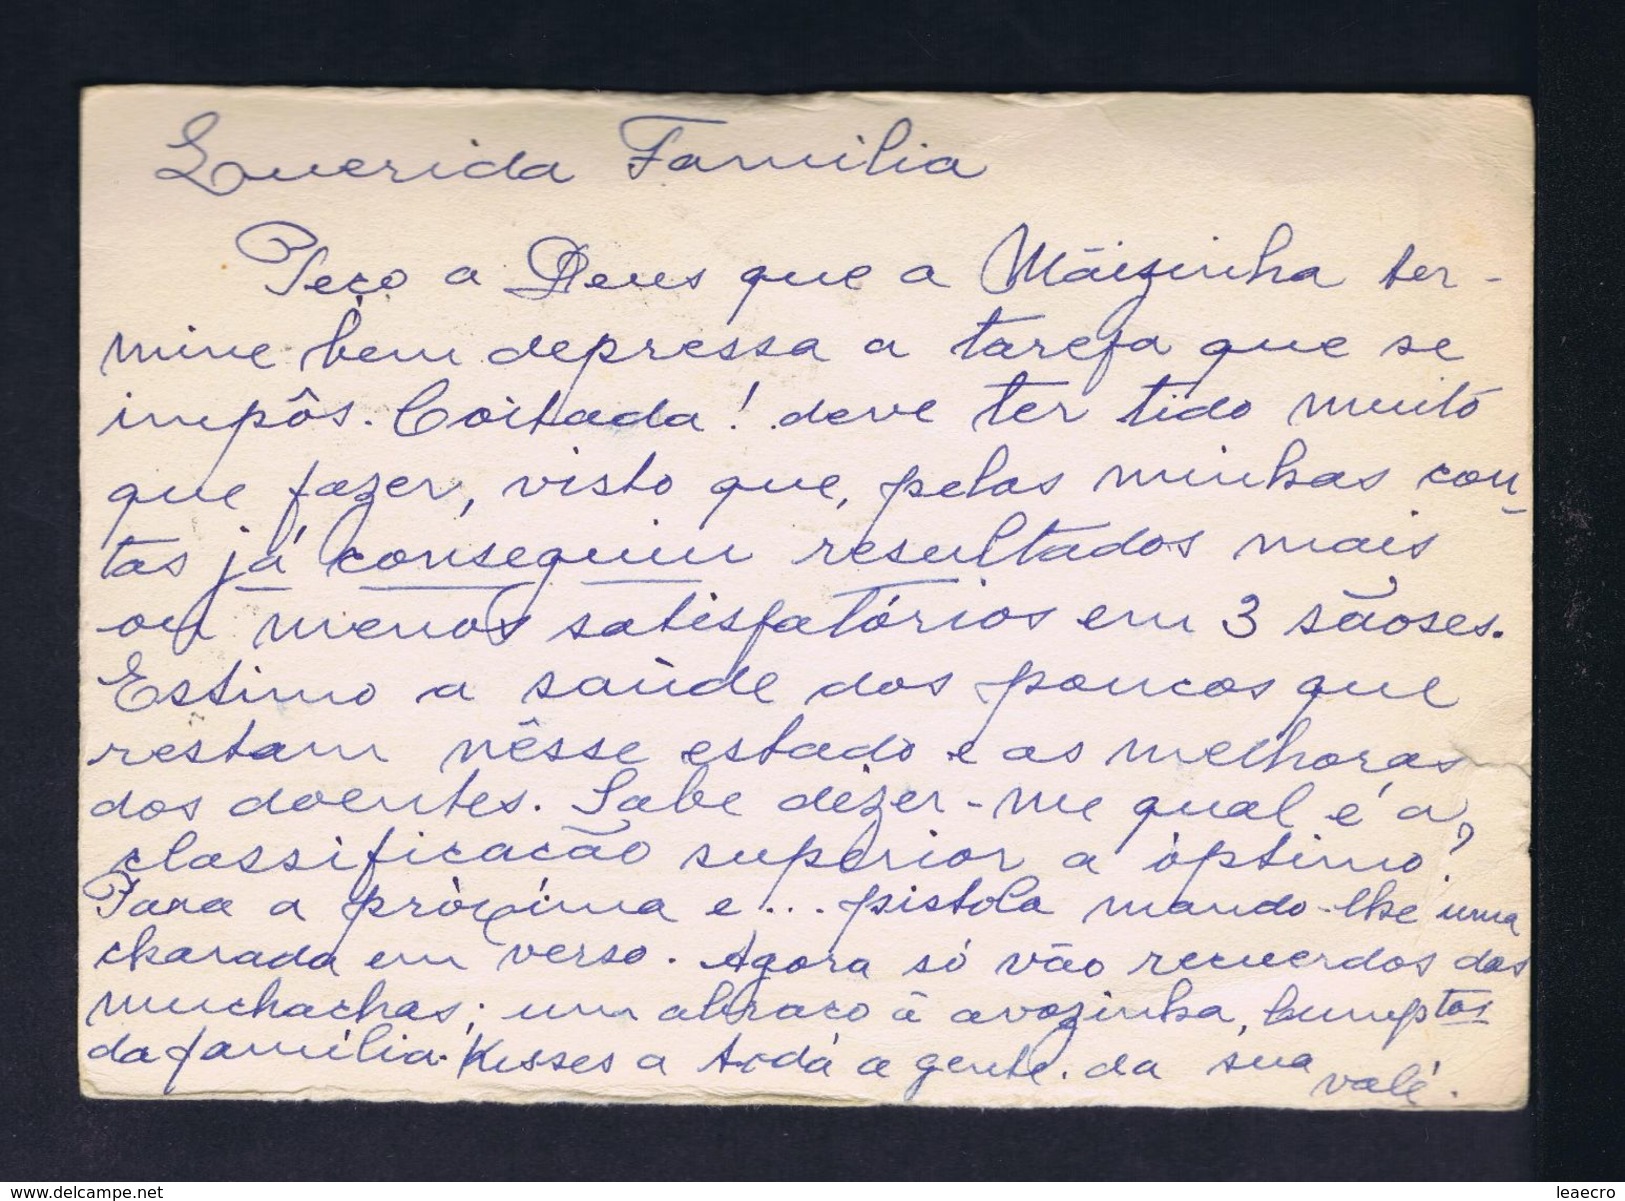 Querida Familia
Peço a Deus que a Mãizinha ter-
mine bem depressa a tarefa que se
impôs. Coitada! deve ter tido muito
que fazer, visto que, pelas minhas con-
tas já conseguiu resultados mais
ou menos satisfatórios em 3 sãoses.
Estimo a saùde dos poucos que
restam nêsse estado e as melhoras
dos doentes. Sabe dizer-me qual é a
classificacão superior a òptimo?
Para a pròxima e... pistola mando-lhe uma
charada em verso. Agora só vão recuerdos das
muchachas; um abraco à avozinha, cumptos
da família. Kisses a tôda a gente. da sua
valé.
delcampe.net
leaecro